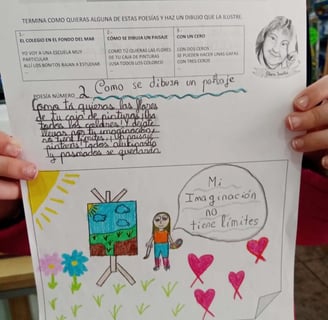 TERMINA COMO QUIERAS ALGUNA DE ESTAS POESÍAS Y HAZ UN DIBUJO QUE LA ILUSTRE.
1.-
EL COLEGIO EN EL FONDO DEL MAR
YO VOY A UNA ESCUELA MUY
PARTICULAR
ALLÍ LOS BONITOS BAJAN A ESTUDIAR
2.-
CÓMO SE DIBUJA UN PAISAJE
COMO TÚ QUIERAS LAS FLORES
DE TU CAJA DE PINTURAS
¡USA TODOS LOS COLORES!
3.-
CON UN CERO
CON DOS CEROS
SE PUEDEN HACER UNAS GAFAS
CON TRES CEROS
POESÍA NÚMERO 2 Como se dibuja un paisaje
Como tú quieras las flores
de tu caja de pinturas ¡Usa
todos los colores! Y déjate
llevar por tu imaginación,
no tiene límites. ¡Un paisaje
pintarás! Todos
y pasmados se quedarán
Mi
Imaginación
no
tiene límites